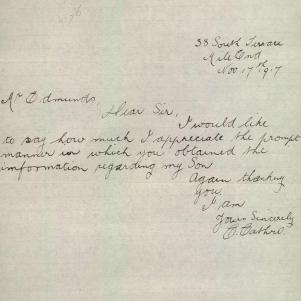 38 South Terrace
Mile End
Nov. 17th 1917
Mr Edmunds,
Dear Sir,
I would like
to say how much I appreciate the prompt
manner in which you obtained the
information regarding my Son
Again thanking
you.
I am
Yours Sincerely